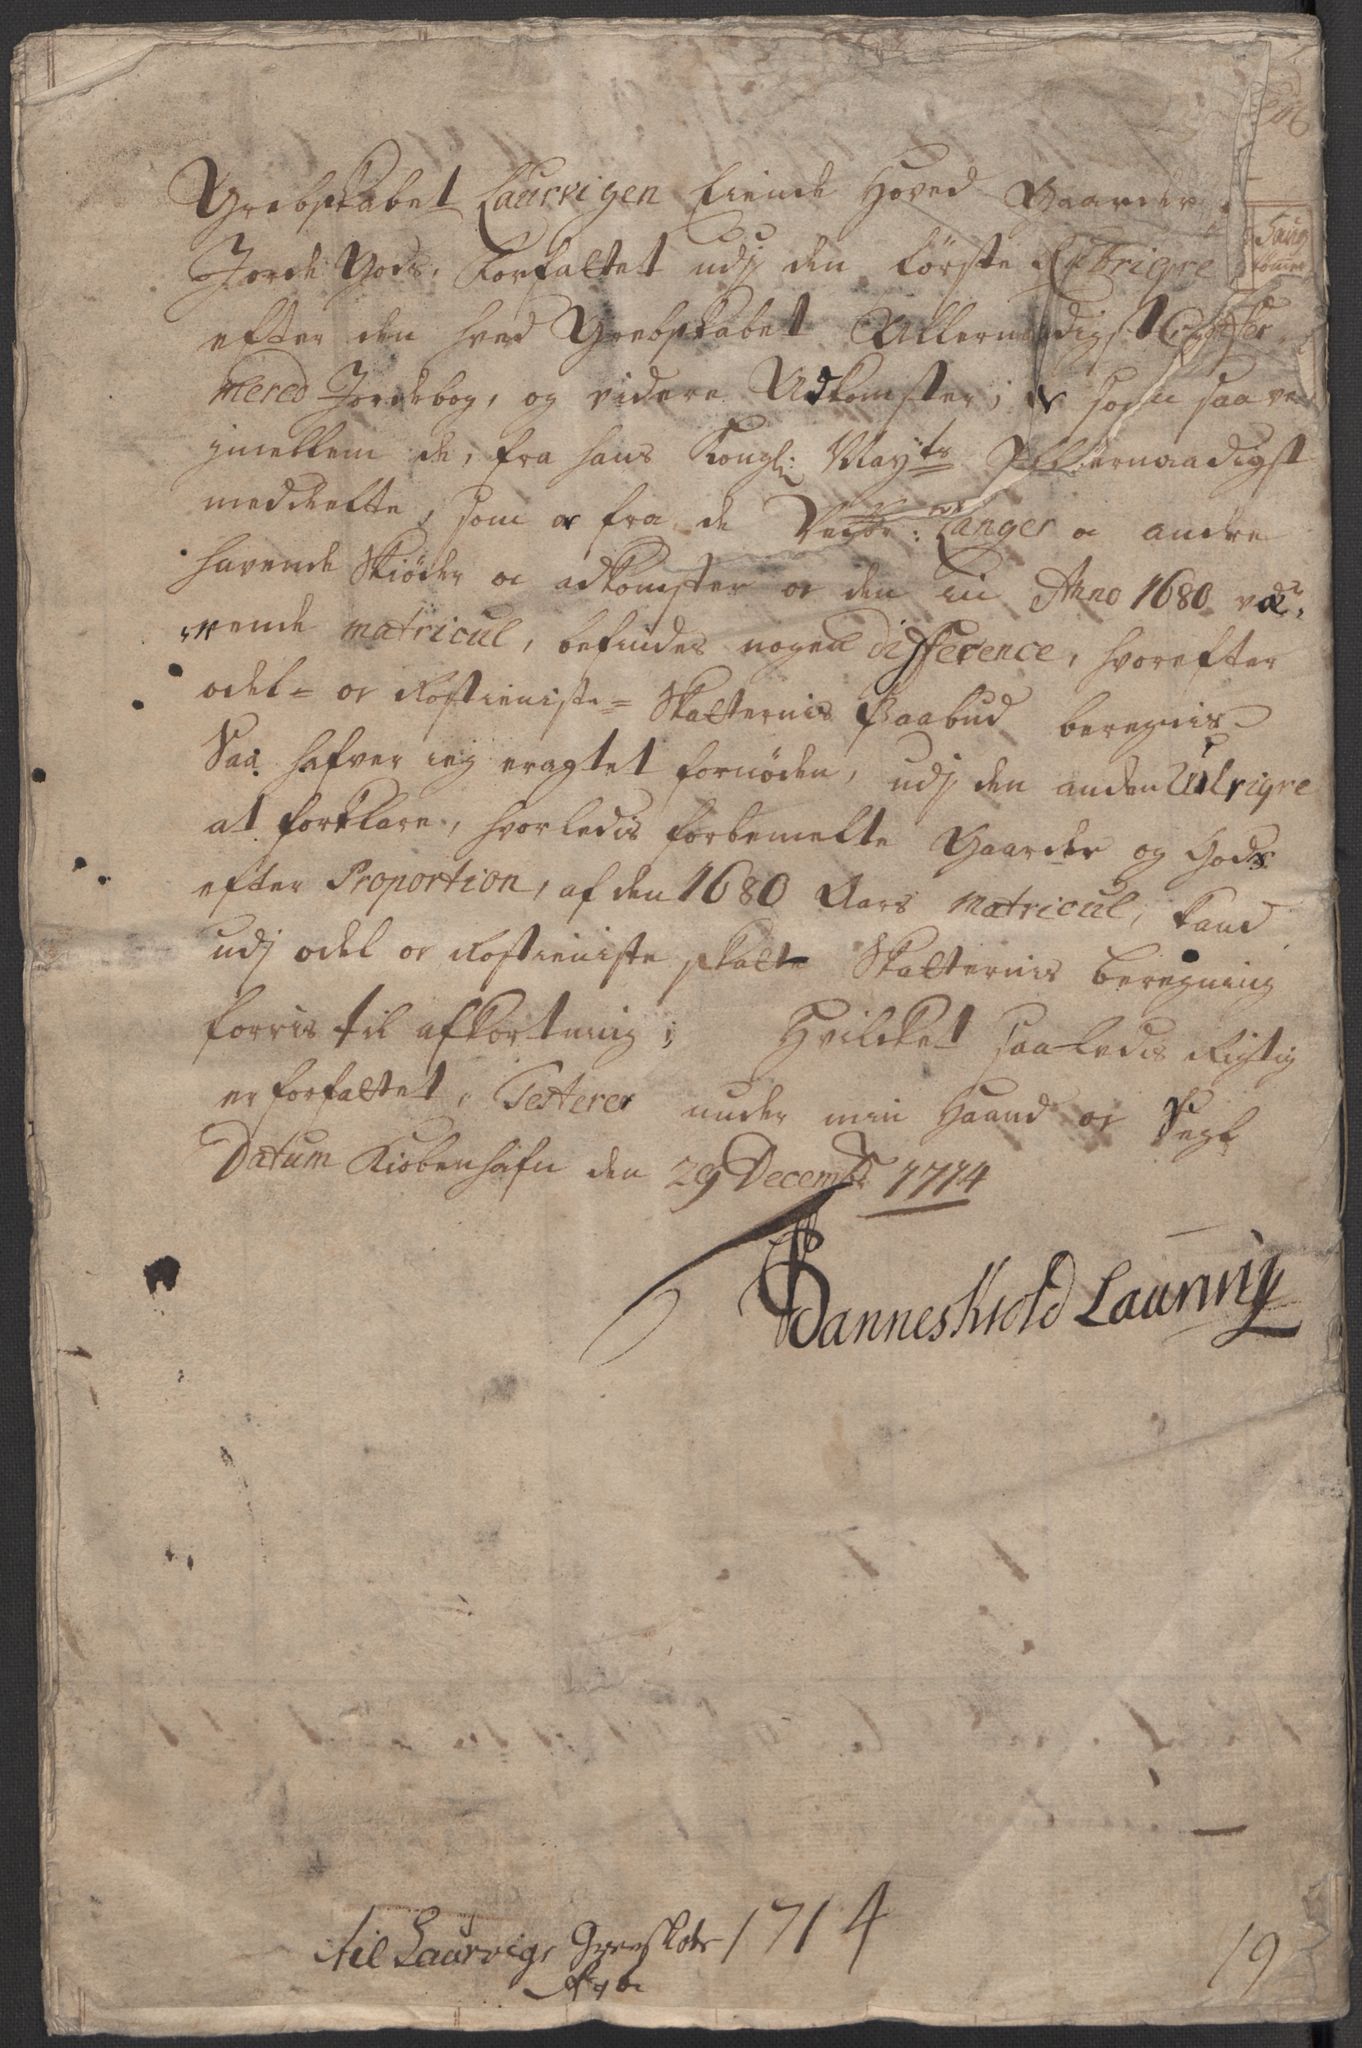 Grebskabet Laurvigen Eiende Hoved Gaarder,
Jorde Gods, Forfattet udj den første Rubriqve
efter den hved Grebskabet Allernaadigst Confir-
mered Jordebog, og videre Udkomster; og som saa vel
jmellem de, fra hans Kongl: Mayts Allernaadigst
meddeelte, som og fra de Langer og andre
havende Skiøder og adkomster og den in Anno 1680 væ-
rende matricul, befindes nogen difference, hvorefter
odel- og Rostieniste- Skatternis Paabud beregnis
Saa hafver ieg eragtet fornøden, udj den anden Rubriqve
at forklare, hvorledis forbemelte Gaarder og Gods
efter Proportion, af den 1680 Aars matricul, kand
udj odel og Rostieniste skatte Skatternis beregning
forris til afkortning; Hvilcket saaledis Rigtig
er forfattet, Testerer under min Haand og Segl
Datum Kiøbenhafn den 29 Decembr 1714
Danneskiold Laurwig
Saug
til Laurvigs Grefskabs 1714
19